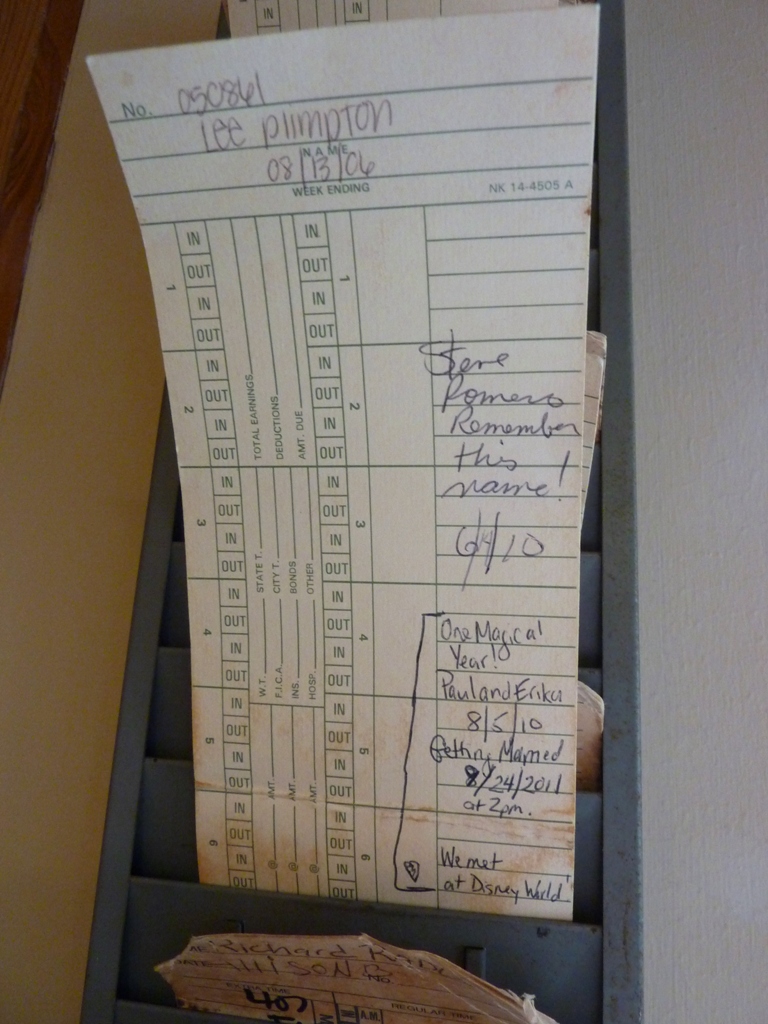 IN IN
No. 050861
Lee Plimpton
NAME
08/13/06
WEEK ENDING NK 14-4505 A
1 IN OUT IN OUT
2 IN OUT IN OUT
3 IN OUT IN OUT
4 IN OUT IN OUT
5 IN OUT IN OUT
6 IN OUT IN OUT
TOTAL EARNINGS
DEDUCTIONS
AMT. DUE
W.T. STATE T.
F.I.C.A. CITY T.
INS. BONDS
HOSP. OTHER
@ AMT.
@ AMT.
@ AMT.
IN OUT IN OUT 1
IN OUT IN OUT 2
IN OUT IN OUT 3
IN OUT IN OUT 4
IN OUT IN OUT 5
IN OUT IN OUT 6
Steve
Romero
Remember
this
name!
6/4/10
One Magical
Year!
Paul and Erika
8/5/10
Getting Married
8/24/2011
at 2pm.
We met
at Disney World
Richard
NO.
EXTRA TIME REGULAR TIME
407
IN A.M.